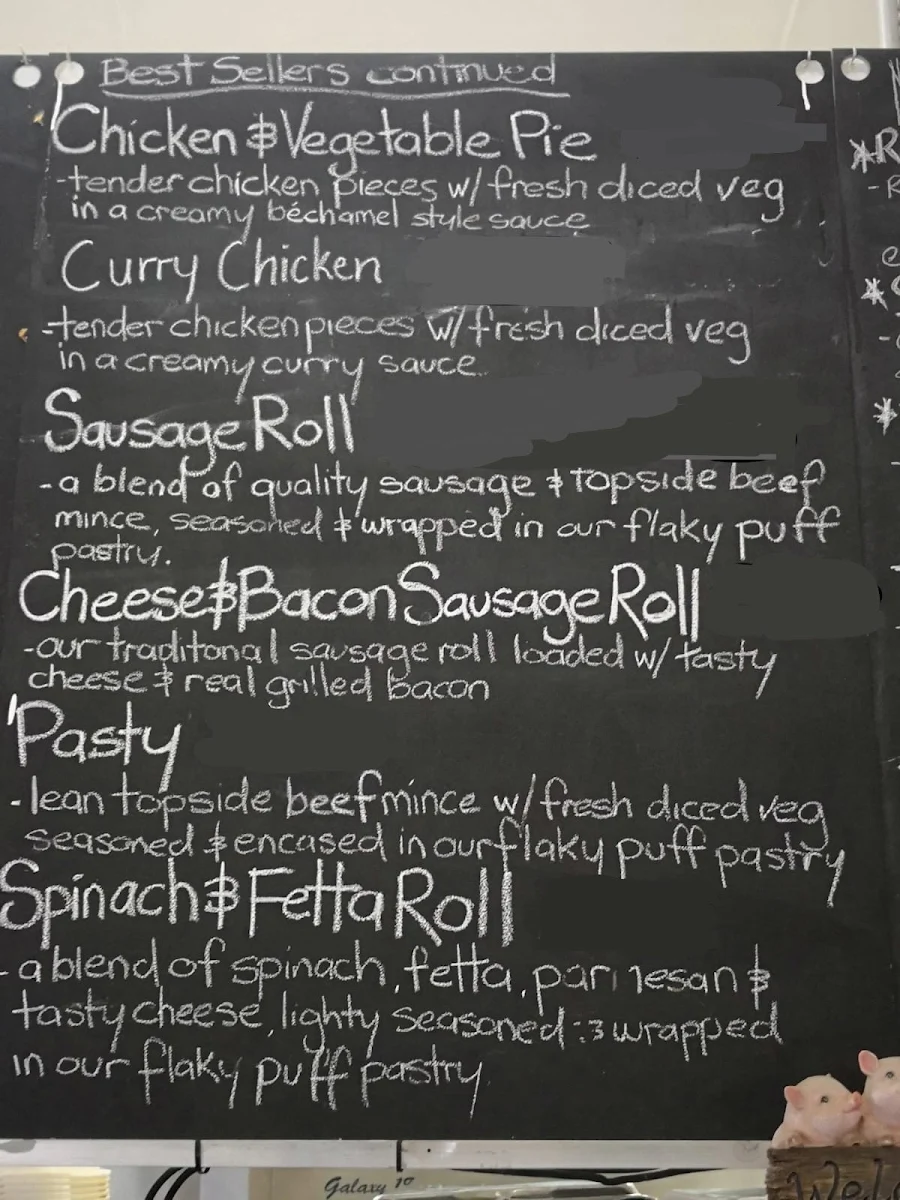 Best Sellers continued
Chicken & Vegetable Pie
-tender chicken pieces w/ fresh diced veg
in a creamy béchamel style sauce
Curry Chicken
-tender chicken pieces w/ fresh diced veg
in a creamy curry sauce.
Sausage Roll
-a blend of quality sausage & topside beef
mince, seasoned & wrapped in our flaky puff
pastry.
Cheese & Bacon Sausage Roll
-our traditonal sausage roll loaded w/ tasty
cheese & real grilled bacon
Pasty
-lean topside beef mince w/ fresh diced veg
seasoned & encased in our flaky puff pastry
Spinach & Fetta Roll
- a blend of spinach, fetta, parmesan &
tasty cheese, lighty seasoned & wrapped
in our flaky puff pastry
Galaxy 10